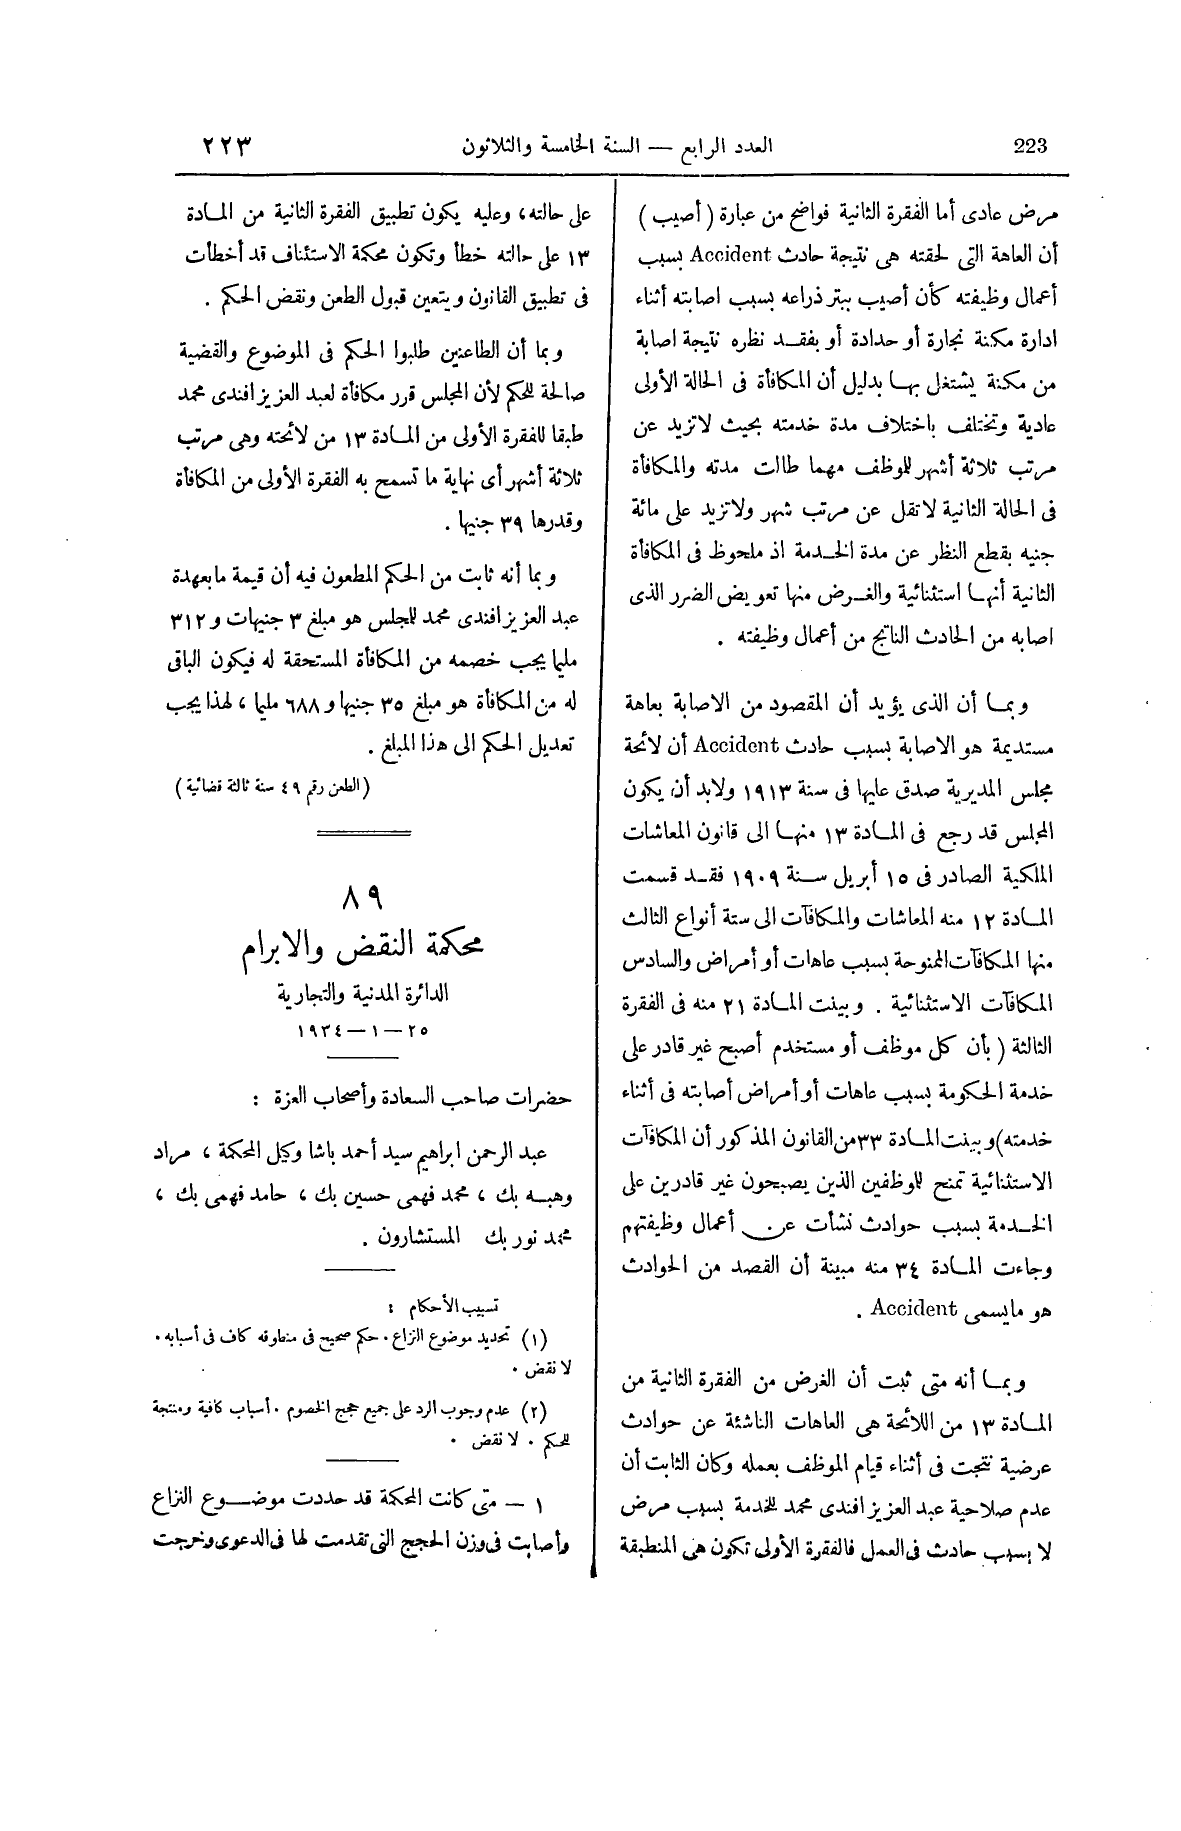 223
العدد الرابع — السنة الخامسة والثلاثون
٢٢٣
مرض عادى أما الفقرة الثانية فواضح من عبارة ( أصيب )
أن العاهة التى لحقته هى نتيجة حادث Accident بسبب
أعمال وظيفته كأن أصيب ببتر ذراعه بسبب اصابته أثناء
ادارة مكنة نجارة أو حدادة أو بفقد نظره نتيجة اصابة
من مكنة يشتغل بها بدليل أن المكافأة فى الحالة الأولى
عادية وتختلف باختلاف مدة خدمته بحيث لاتزيد عن
مرتب ثلاثة أشهر للموظف مهما طالت مدته والمكافأة
فى الحالة الثانية لاتقل عن مرتب شهر ولاتزيد على مائة
جنيه بقطع النظر عن مدة الخدمة اذ ملحوظ فى المكافأة
الثانية أنها استثنائية والغرض منها تعويض الضرر الذى
اصابه من الحادث الناتج من أعمال وظيفته .
وبما أن الذى يؤيد أن المقصود من الاصابة بعاهة
مستديمة هو الاصابة بسبب حادث Accident أن لائحة
مجلس المديرية صدق عليها فى سنة ١٩١٣ ولابد أن يكون
المجلس قد رجع فى المادة ١٣ منها الى قانون المعاشات
الملكية الصادر فى ١٥ أبريل سنة ١٩٠٩ فقد قسمت
المادة ١٢ منه المعاشات والمكافآت الى ستة أنواع الثالث
منها المكافآت الممنوحة بسبب عاهات أو أمراض والسادس
المكافآت الاستثنائية . وبينت المادة ٢١ منه فى الفقرة
الثالثة ( بأن كل موظف أو مستخدم أصبح غير قادر على
خدمة الحكومة بسبب عاهات أو أمراض أصابته فى أثناء
خدمته) وبينت المادة ٣٣ من القانون المذكور أن المكافآت
الاستثنائية تمنح للموظفين الذين يصبحون غير قادرين على
الخدمة بسبب حوادث نشأت عن أعمال وظيفتهم
وجاءت المادة ٣٤ منه مبينة أن القصد من الحوادث
هو مايسمى Accident .
وبما أنه متى ثبت أن الغرض من الفقرة الثانية من
المادة ١٣ من اللائحة هى العاهات الناشئة عن حوادث
عرضية نتجت فى أثناء قيام الموظف بعمله وكان الثابت أن
عدم صلاحية عبد العزيز افندى محمد للخدمة بسبب مرض
لا بسبب حادث فى العمل فالفقرة الأولى تكون هى المنطبقة
على حالته، وعليه يكون تطبيق الفقرة الثانية من المادة
١٣ على حالته خطأ وتكون محكمة الاستئناف قد أخطأت
فى تطبيق القانون ويتعين قبول الطعن ونقض الحكم .
وبما أن الطاعنين طلبوا الحكم فى الموضوع والقضية
صالحة للحكم لأن المجلس قرر مكافأة لعبد العزيز افندى محمد
طبقا للفقرة الأولى من المادة ١٣ من لائحته وهى مرتب
ثلاثة أشهر أى نهاية ما تسمح به الفقرة الأولى من المكافأة
وقدرها ٣٩ جنيها .
وبما أنه ثابت من الحكم المطعون فيه أن قيمة مابعهدة
عبد العزيز افندى محمد للمجلس هو مبلغ ٣ جنيهات و ٣١٢
مليما يجب خصمه من المكافأة المستحقة له فيكون الباقى
له من المكافأة هو مبلغ ٣٥ جنيها و ٦٨٨ مليما ، لهذا يجب
تعديل الحكم الى هذا المبلغ .
( الطعن رقم ٤٩ سنة ثالثة قضائية )
٨٩
محكمة النقض والابرام
الدائرة المدنية والتجارية
٢٥ — ١ — ١٩٣٤
حضرات صاحب السعادة وأصحاب العزة :
عبد الرحمن ابراهيم سيد أحمد باشا وكيل المحكمة ، مراد
وهبه بك ، محمد فهمى حسين بك ، حامد فهمى بك ،
محمد نور بك المستشارون .
تسبيب الأحكام :
(١) تحديد موضوع النزاع . حكم صحيح فى منطوقه كاف فى أسبابه .
لا نقض .
(٢) عدم وجوب الرد على جميع حجج الخصوم . أسباب كافية ومنتجة
للحكم . لا نقض .
١ — متى كانت المحكمة قد حددت موضوع النزاع
وأصابت فى وزن الحجج التى تقدمت لها فى الدعوى وخرجت